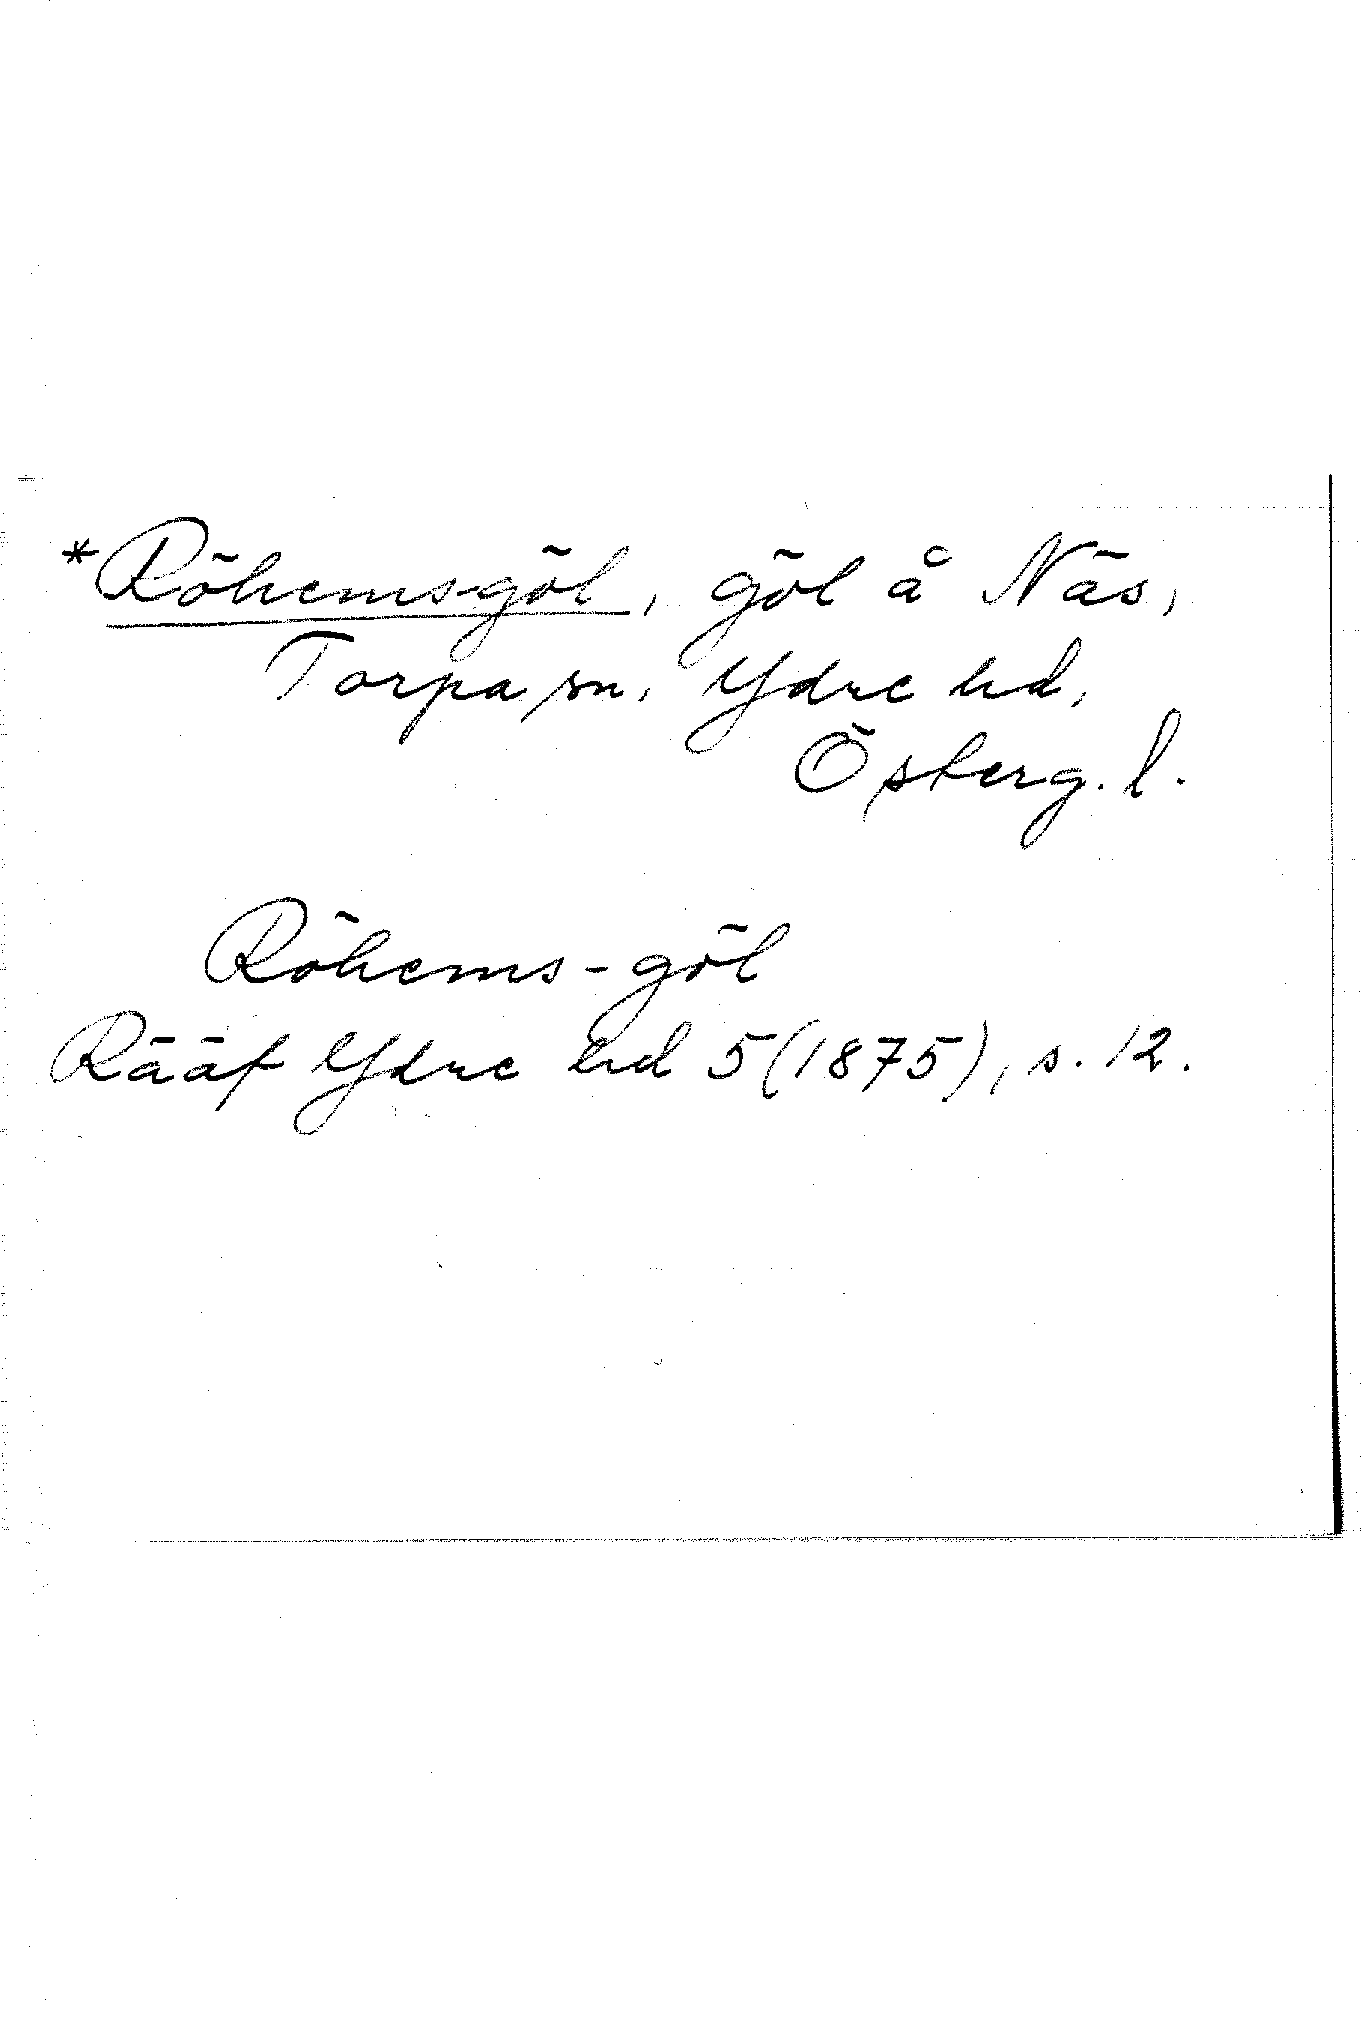 *Röhems-göl, göl å Näs,
Torpa sn, Ydre hd,
Österg. l.
Röhems-göl
Rääf Ydre hd 5 (1875), s. 12.